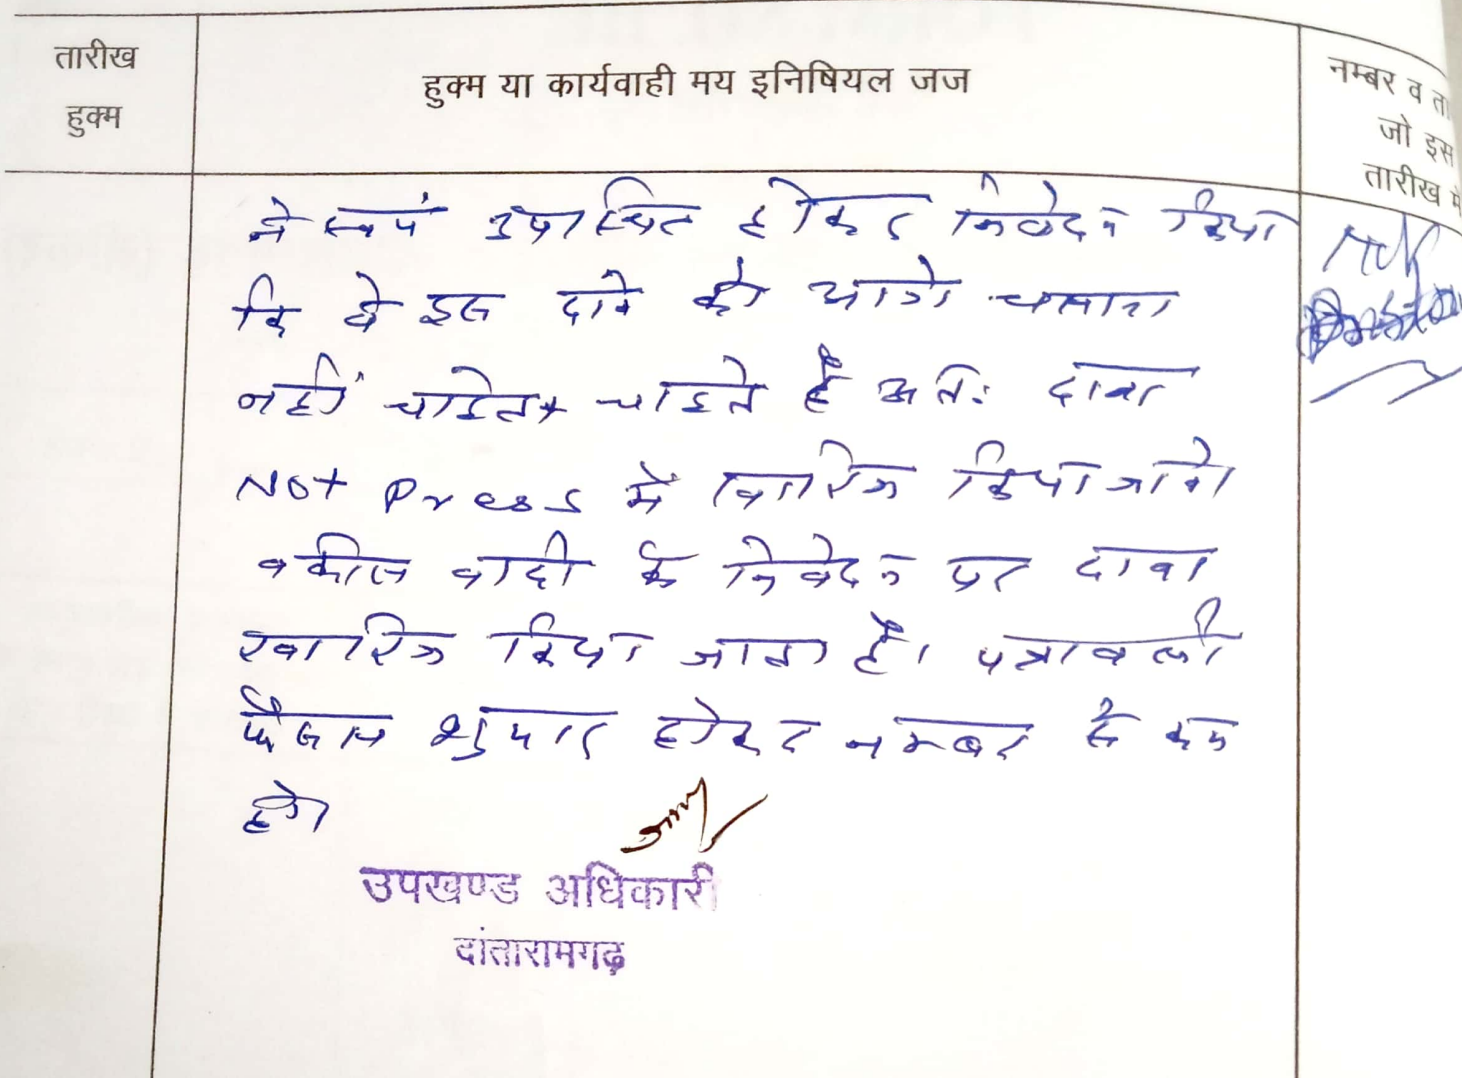 तारीख
हुक्म
हुक्म या कार्यवाही मय इनिषियल जज
नम्बर व ता
जो इस
तारीख मे
ने स्वयं उपस्थित होकर निवेदन किया
कि वे इस दावे को आगे चलाना
नहीं चाहते चाहते हैं अतः दावा
Not Press में खारिज किया जावे।
वकील वादी के निवेदन पर दावा
खारिज किया जाता है। पत्रावली
फैसल शुमार होकर नम्बर से कम
हो।
उपखण्ड अधिकारी
दांतारामगढ़